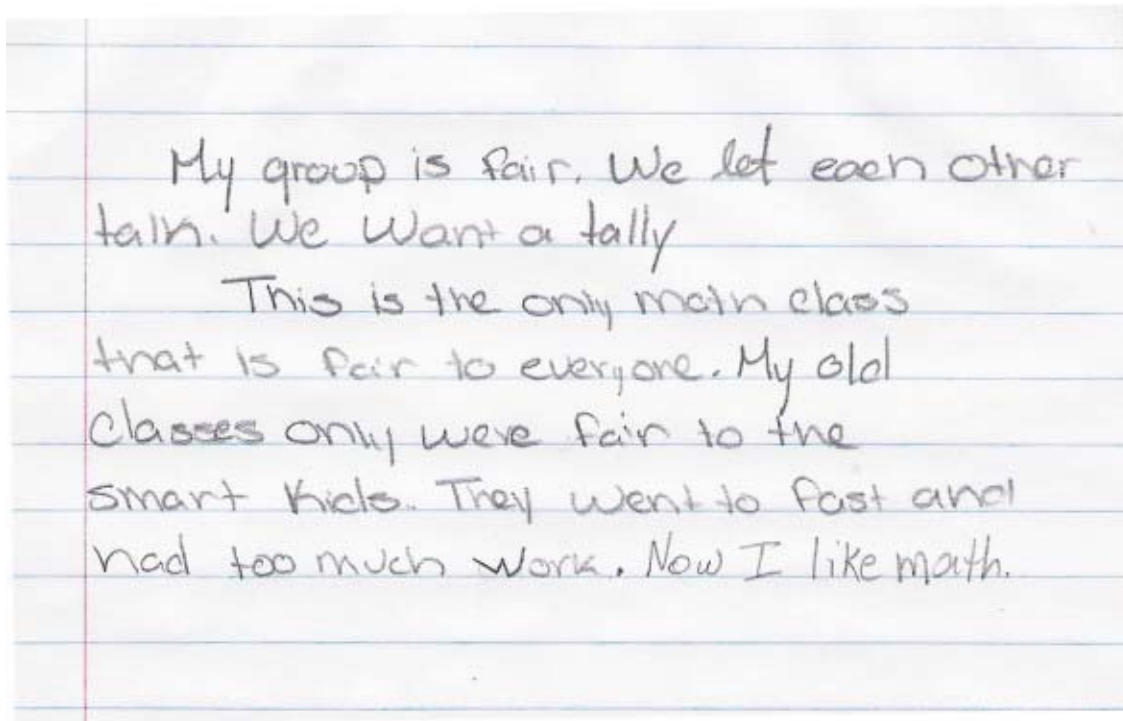 My group is fair. We let each other
talk. We want a tally
This is the only math class
that is fair to everyone. My old
classes only were fair to the
smart kids. They went to fast and
had too much work. Now I like math.